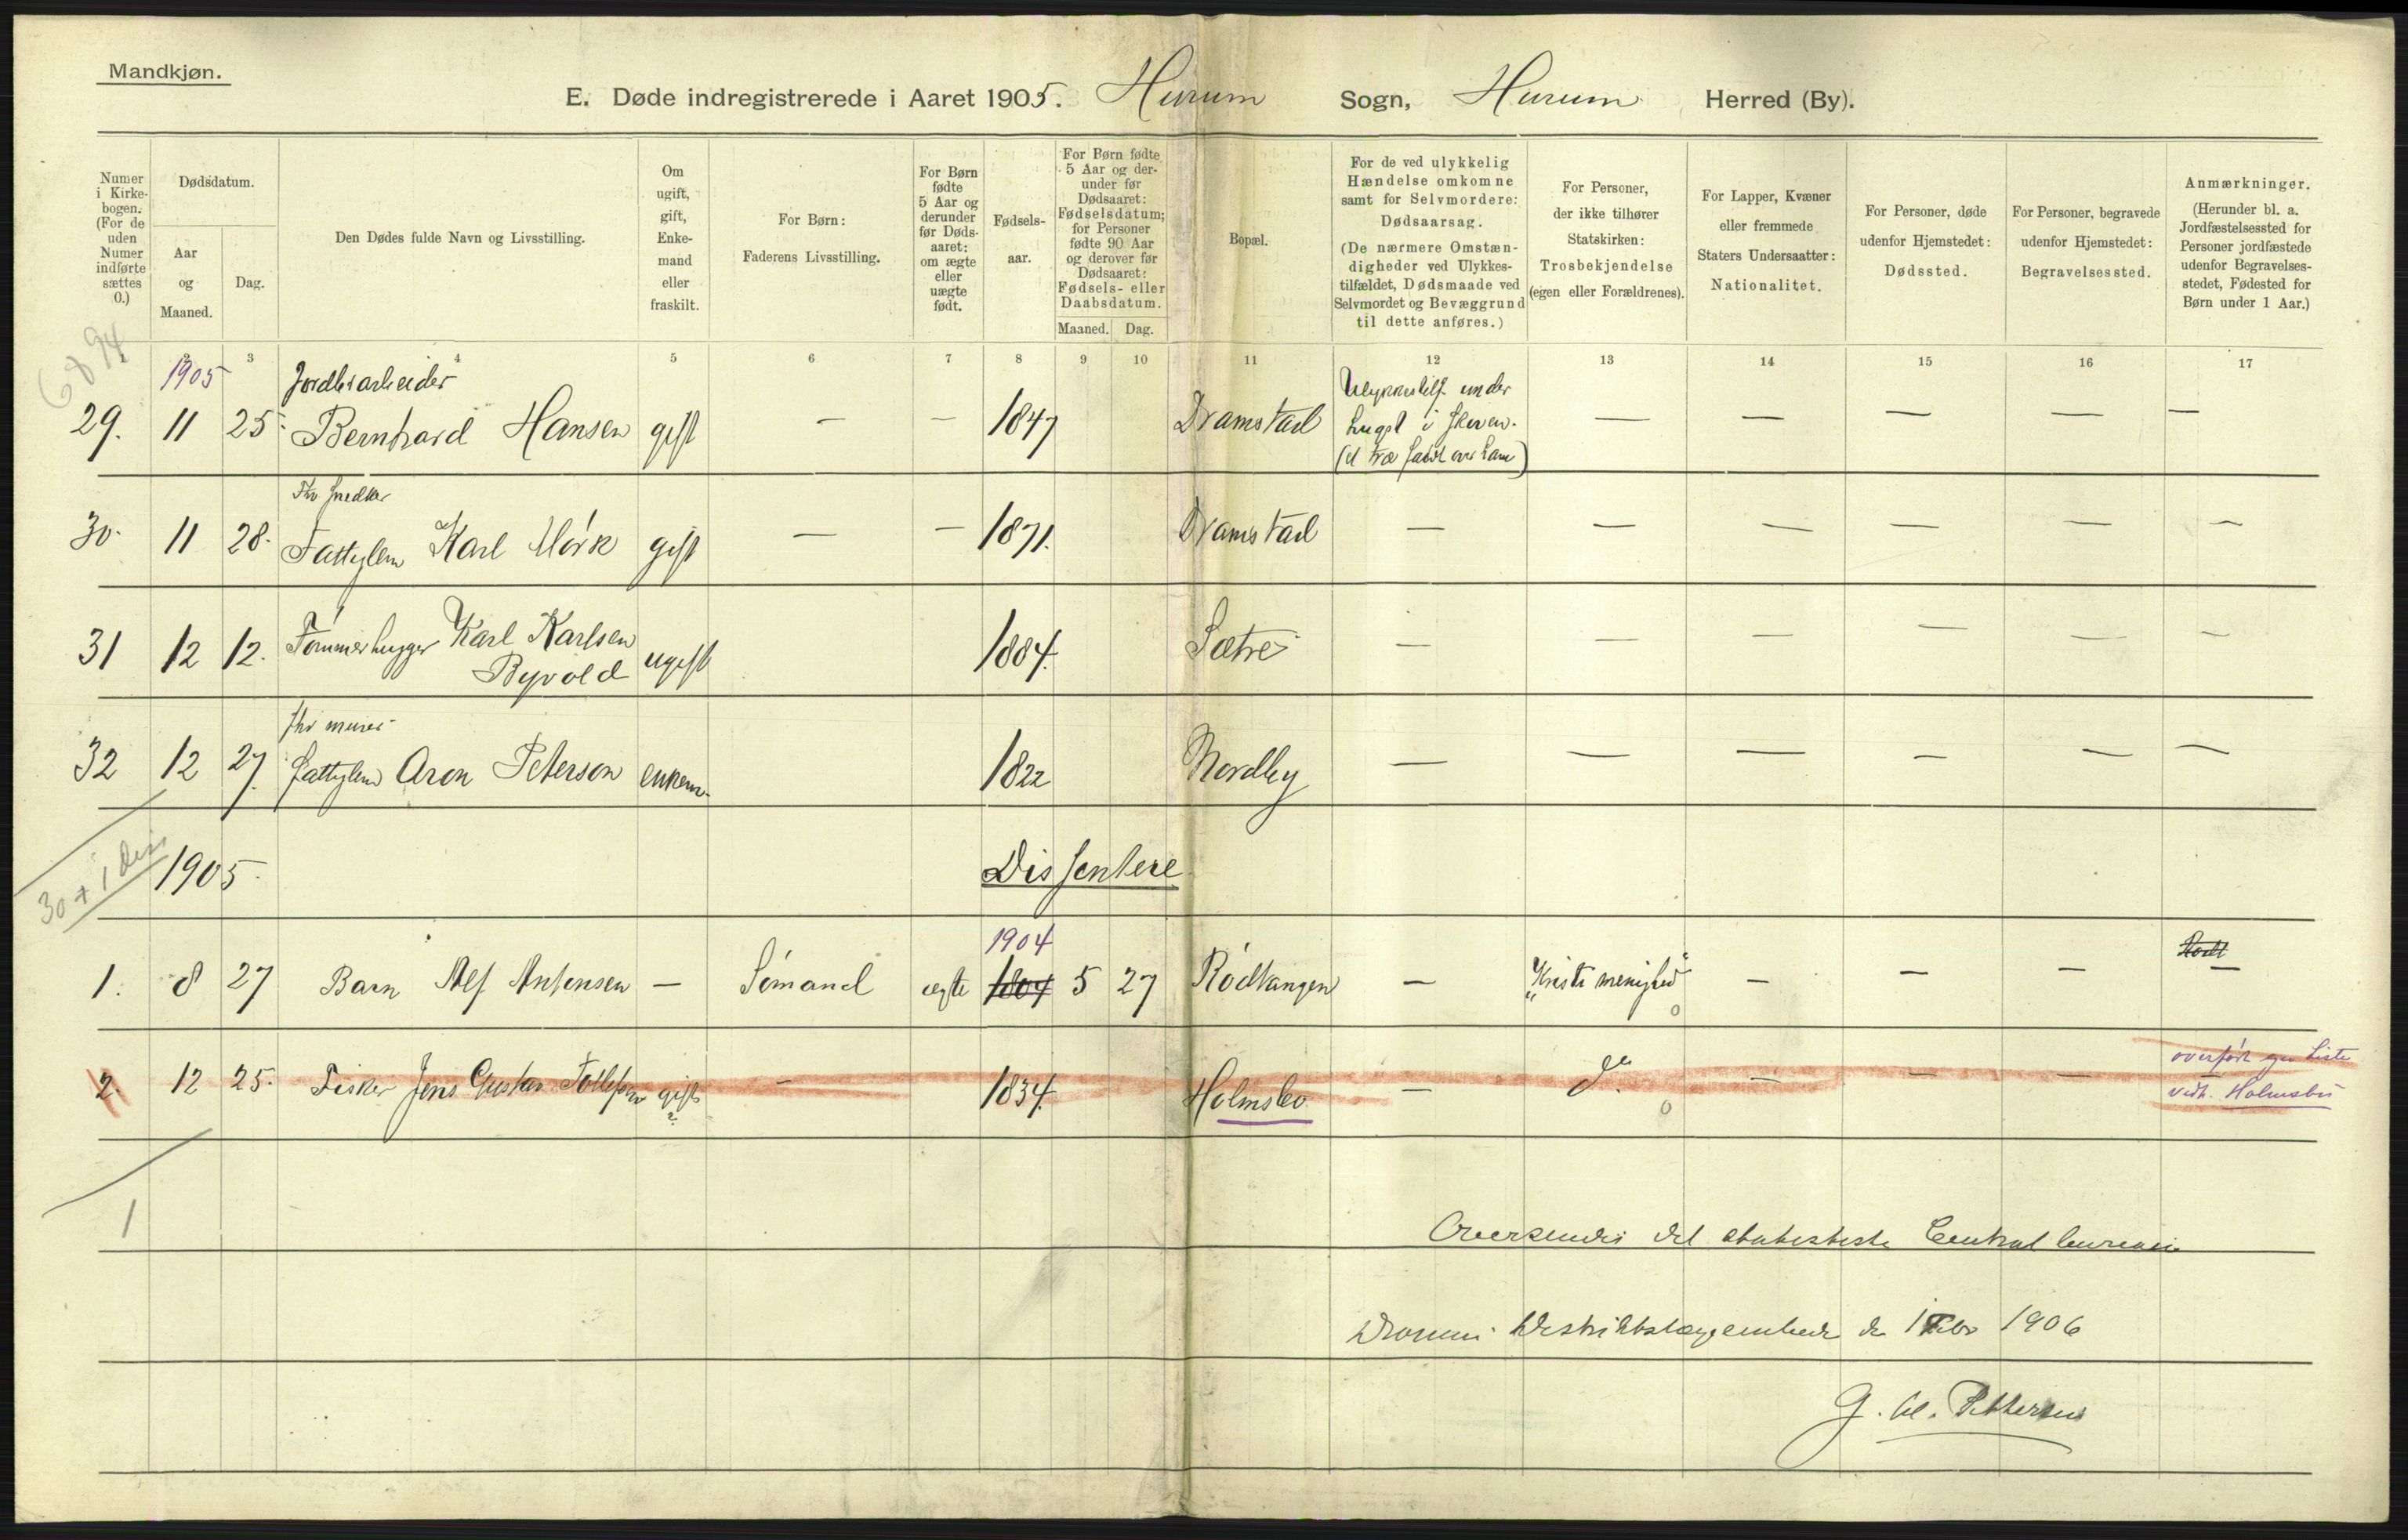 Mandkjøn.
E. Døde indregistrerede i Aaret 1905. Hurum Sogn, Hurum Herred (By).
Numer i Kirkebogen. (For de uden Numer indførte sættes 0.)
Dødsdatum.
Aar og Maaned.
Dag.
Den Dødes fulde Navn og Livsstilling.
Om ugift, gift, Enkemand eller fraskilt.
For Børn: Faderens Livsstilling.
For Børn fødte 5 Aar og derunder før Dødsaaret: om ægte eller uægte født.
Fødselsaar.
For Børn fødte 5 Aar og derunder før Dødsaaret: Fødselsdatum; for Personer fødte 90 Aar og derover før Dødsaaret: Fødsels- eller Daabsdatum.
Maaned. Dag.
Bopæl.
For de ved ulykkelig Hændelse omkomne samt for Selvmordere: Dødsaarsag. (De nærmere Omstændigheder ved Ulykkestilfældet, Dødsmaade ved Selvmordet og Bevæggrund til dette anføres.)
For Personer, der ikke tilhører Statskirken: Trosbekjendelse (egen eller Forældrenes).
For Lapper, Kvæner eller fremmede Staters Undersaatter: Nationalitet.
For Personer, døde udenfor Hjemstedet: Dødssted.
For Personer, begravede udenfor Hjemstedet: Begravelsessted.
Anmærkninger. (Herunder bl. a. Jordfæstelsessted for Personer jordfæstede udenfor Begravelsesstedet, Fødested for Børn under 1 Aar.)
6894
2 3 4 5 6 7 8 9 10 11 12 13 14 15 16 17
1905 Jordbrarbeider Ulykkestilf. under
29. 11 25. Bernhard Hansen gift — — 1847 Dramstad hugst i skoven. — — — — —
(et træ faldt over ham)
Fhv snedker
30. 11 28. Fattiglem Karl Mörk gift — — 1871. Dramstad — — — — — —
31 12 12. Tömmerhugger Karl Karlsen Byvold ugift 1884. Sætre — — — — — —
fhv murer
32 12 27. fattiglem Aron Peterson enkem. 1822 Nordby — — — — — —
30 + 1 diss
1905. Dissentere
1904
1. 8 27 Barn Alf Antonsen — Sömand ægte 1804 5 27 Rödtangen — "Kristi menighed" — — — —
2. 12 25. Fisker Jens Gustav Tollefsen gift — 1834. Holmsbo — do. — — — overført
vedk. Holmsbu
1
Oversendes det statistiske Centralbureau
Distriktslægeembede 1 Febr 1906